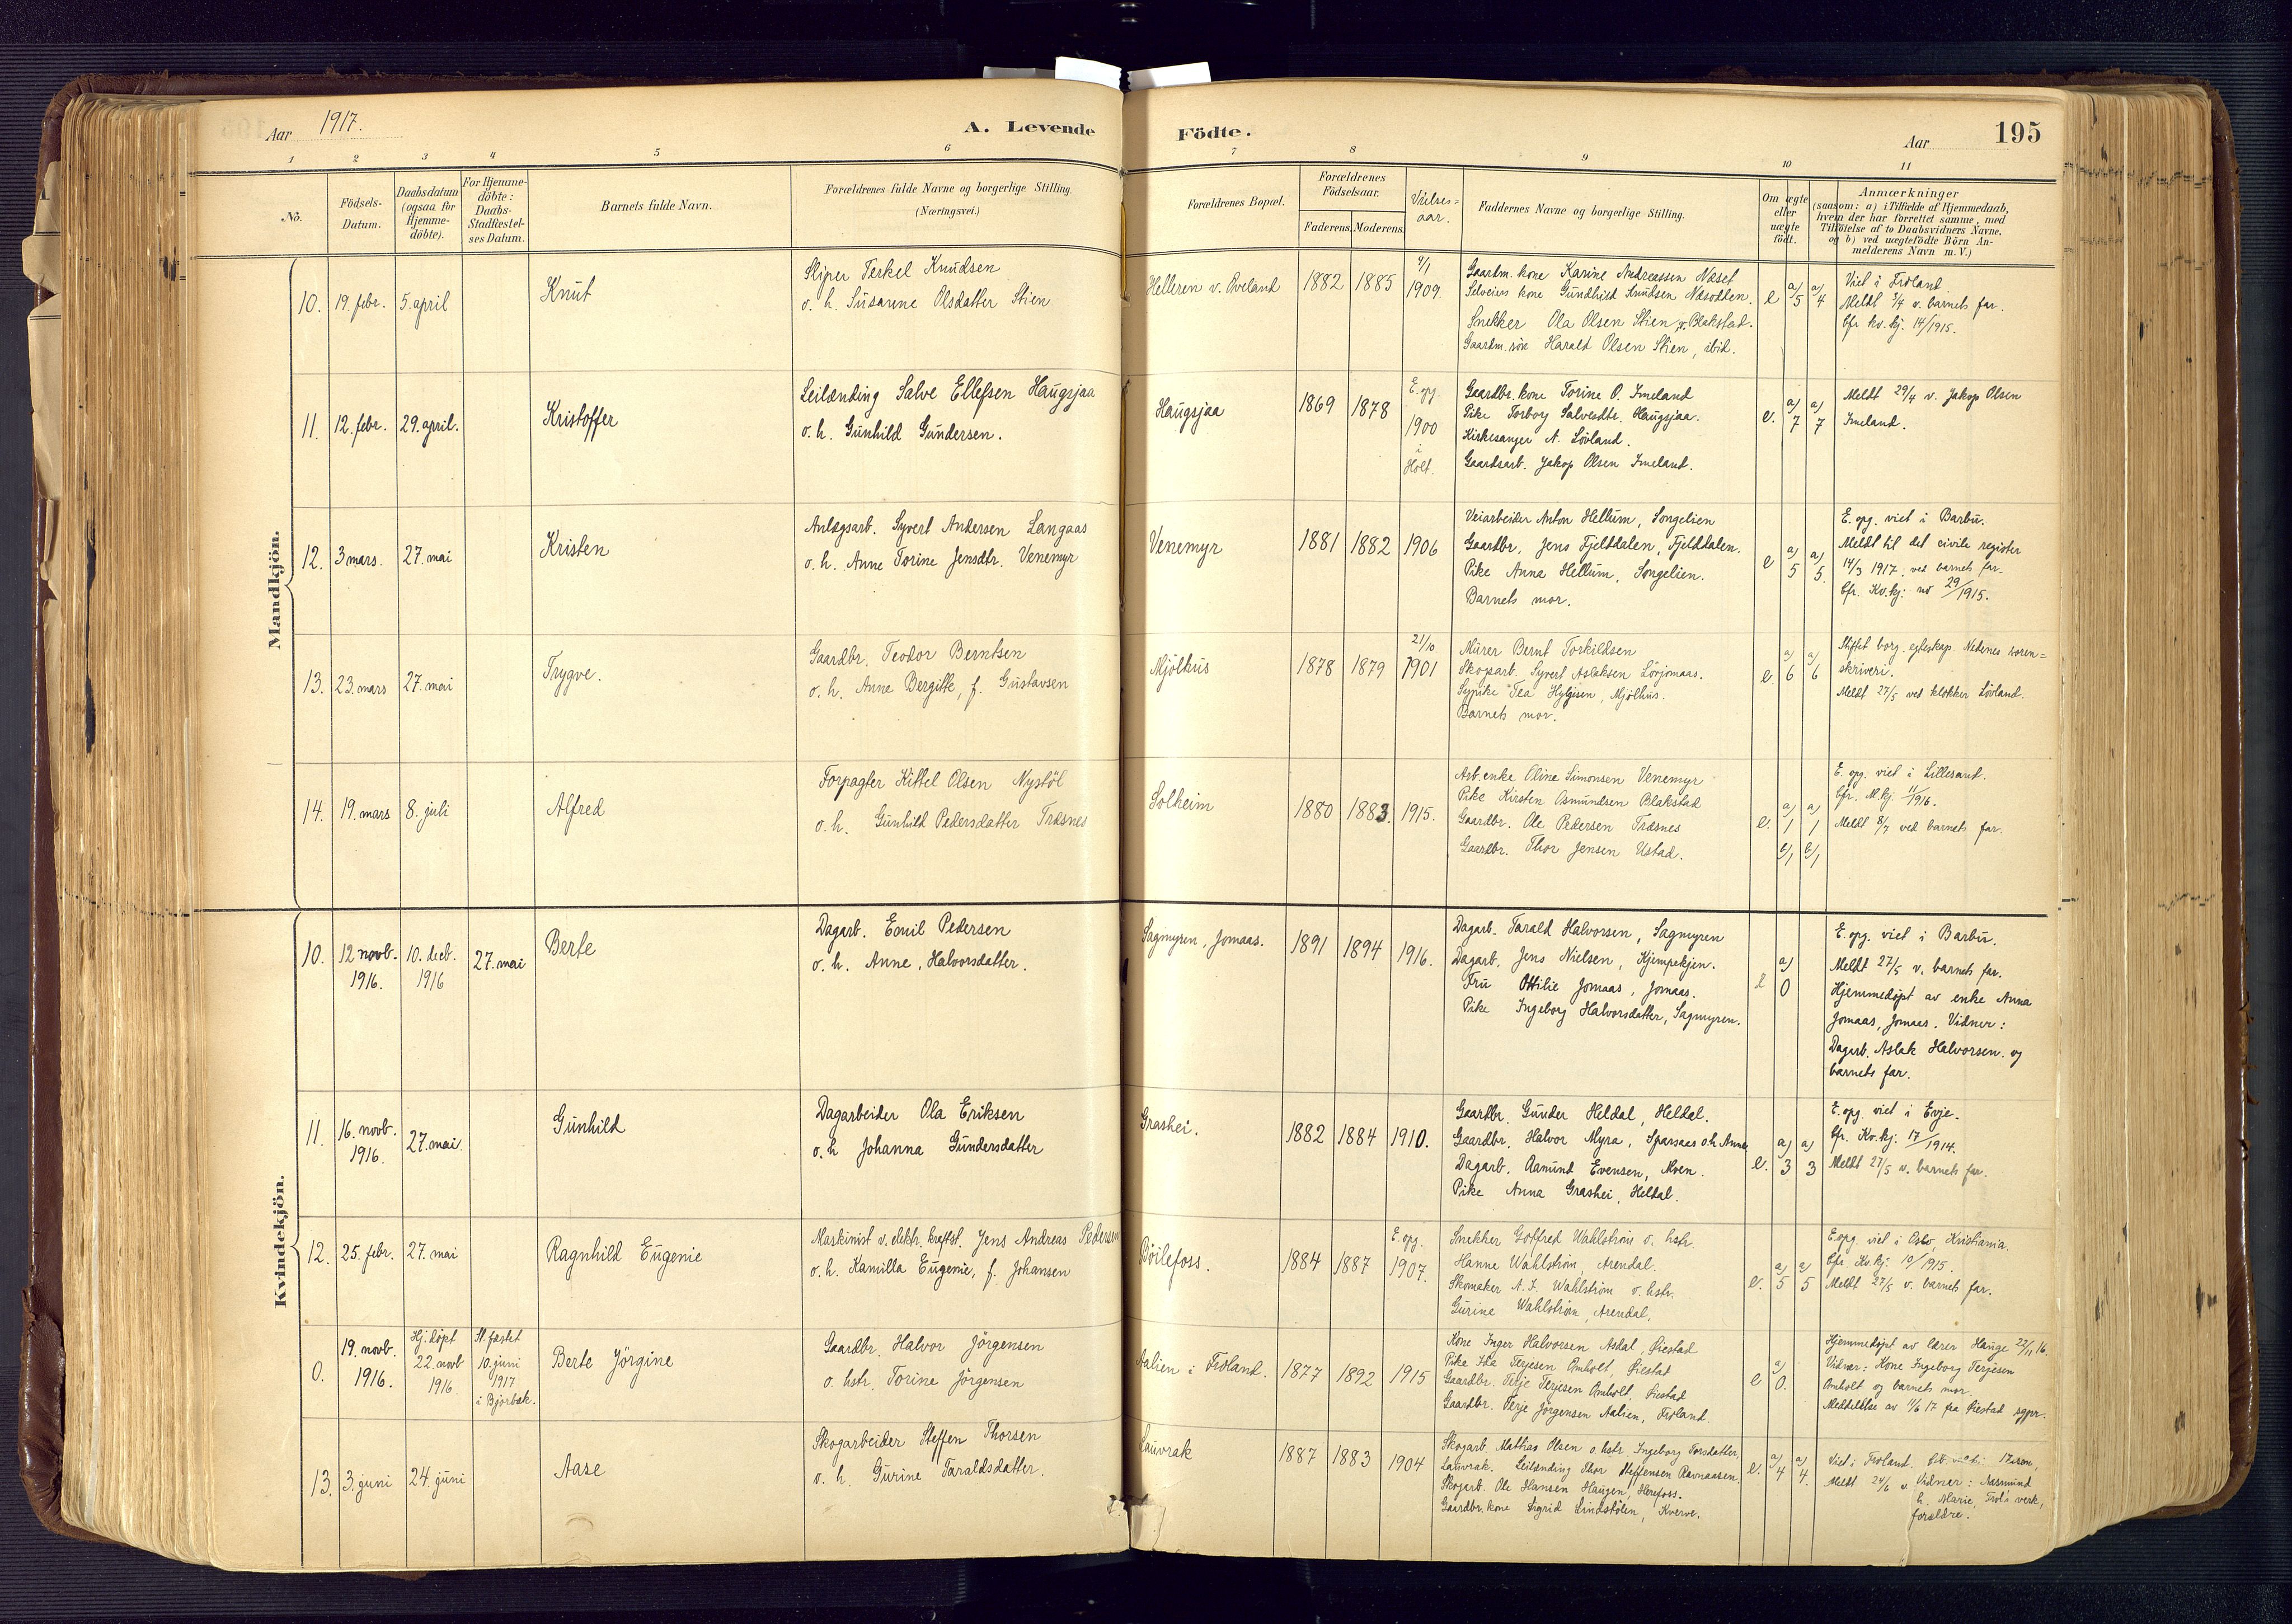 Aar 1917.
A. Levende
Födte.
Aar
195
1 2 3 4 5 6 7 8 9 10 11
No.
Födsels-
Datum.
Daabsdatum
(ogsaa for
Hjemme-
döbte).
For Hjemme-
döbte:
Daabs-
Stadfæstel-
ses Datum.
Barnets fulde Navn.
Forældrenes fulde Navne og borgerlige Stilling.
(Næringsvei.)
Forældrenes Bopæl.
Forældrenes
Födselsaar.
Faderens. Moderens.
Vielses=
aar.
Faddernes Navne og borgerlige Stilling.
Om ægte
eller
uægte
födt.
Anmærkninger
(saasom: a) i Tilfælde af Hjemmedaab,
hvem der har forrettet samme, med
Tilföielse af to Daabsvidners Navne,
og b) ved uægtefödte Börn An-
melderens Navn m. V.)
Mandkjön.
10. 19. febr. 5. april
Knut
Skiper Terkel Knudsen
o. h. Susanne Olsdatter Stien
Helleren v. Öveland
1882 1885
4/1
1909
Gaardm. kone Karine Andreassen Næset
Selveiers kone Gundhild Knudsen Næsodden.
Snekker Ola Olsen Stien v. Blakstad.
Gaardm. sön Harald Olsen Stien, ibid.
e a) 5 a) 4
Viet i Fröland
Meldt 5/4 v. barnets far.
Cfr kv. kj. 14/1915.
11. 12. febr. 29. april.
Kristoffer
Leilænding Salve Ellefsen Haugsjaa
o. h. Gunhild Gundersen.
Haugsjaa
1869 1878
E. opg.
1900
i
Holt.
Gaardbr. kone Torine O. Imeland
Pike Torborg Salvesdtr. Haugsjaa.
Kirkesanger A. Lövland.
Gaardsarb. Jakop Olsen Imeland.
e. a) 7 a) 7
Meldt 29/4 v. Jakop Olsen
Imeland.
12. 3 mars. 27. mai
Kristen
Anlægsarb. Syvert Andersen Langaas
o. h. Anne Torine Jensdtr. Venemyr
Venemyr
1881 1882 1906
Veiarbeider Anton Hellum, Songelien
Gaardbr. Jens Fjelddalen, Fjelddalen.
Pike Anna Hellum, Songelien.
Barnets mor.
e a) 5 a) 5.
E. opg. viet i Barbu.
Meldt til det civile register
14/3 1917. ved barnets far.
Cfr. Kv. kj: no 29/1915.
13. 23. mars 27. mai
Trygve.
Gaardbr. Teodor Berntsen
o. h. Anne Bergitte, f. Gustavsen
Mjölhus
1878 1879
21/10
1901
Murer Bernt Torkildsen
Skogsarb. Syvert Aslaksen Lörjomaas.
Sypike Tea Hylgisen, Mjölhus.
Barnets mor.
e. a) 6 a) 6
Stiftet borg. egteskap Nedenes soren=
skriveri.
Meldt 27/5 ved klokker Lövland.
14. 19. mars 8. juli
Alfred
Forpagter Kittel Olsen Nystöl
o. h. Gunhild Pedersdatter Træsnes
Solheim
1880 1883. 1915.
Arb. enke Oline Simonsen Venemyr
Pike Kirsten Osmundsen Blakstad
Gaardbr. Ole Pedersen Træsnes
Gaardbr. Thor Jensen Ustad.
e. a) 1 a) 1
b) 1 b) 1
E. opg. viet i Lillesand.
Cfr. M. kj 11/1916.
Meldt 8/7 ved barnets far.
Kvindekjön.
10. 12 novb. 10. decb. 27. mai
1916. 1916
Berte
Dagarb. Emil Pedersen
o. h. Anne, Halvorsdatter.
Sagmyren, Jomaas.
1891 1894 1916.
Dagarb. Tarald Halvorsen, Sagmyren
Dagarb. Jens Nielsen, Kjempekjen.
Fru Ottilie Jomaas, Jomaas.
Pike Ingeborg Halvorsdatter, Sagmyren.
e a) 0
E. opg. viet i Barbu.
Meldt 27/5 v. barnets far.
Hjemmedöpt av enke Anna
Jomaas, Jomaas. Vidner:
Dagarb. Aslak Halvorsen. og
barnets far.
11. 16. novb. 27. mai.
1916.
Gunhild
Dagarbeider Ola Eriksen
o. h Johanna Gundersdatter
Grashei.
1882 1884 1910.
Gaardbr. Gunder Heldal, Heldal.
Gaardbr. Halvor Myra, Sparsaas o h Anne
Dagarb. Aamund Evensen, Moen.
Pike Anna Grashei, Heldal.
e. a) 3 a) 3
E. opg. viet i Evje.
Cfr. Kv. kj. 17/1914.
Meldt 27/5 v. barnets far.
12. 25. febr. 27. mai
Ragnhild Eugenie
Maskinist v. elektr. kraftst. Jens Andreas Pedersen
o. h. Kamilla Eugenie, f. Johansen
Böilefoss.
1884 1887
E. opg.
1907.
Snekker Goffred Wahlström o. hstr.
Hanne Wahlström, Arendal.
Skomaker A. J. Wahlström o. hstr.
Gurine Wahlström, Arendal.
e. a) 5 a) 5
E. opg. viet i Oslo, Kristiania.
Cfr. Kv. kj. 10/1915.
Meldt 27/5 v. barnets far.
0. 19. novb.
1916.
Hj. döpt
22. novb
1916.
St. fæstet
10. juni
1917
i Bjorbæk.
Berte Jörgine
Gaardbr. Halvor Jörgensen
o. hstr. Torine Jörgensen
Aalien i Fröland.
1877 1892 1915
Kone Inger Halvorsen Asdal, Öiestad
Pike Ida Terjesen Omholt, Öiestat
Gaardbr. Terje Terjesen Omholt, Öiestad
Gaardbr. Terje Jörgensen Aalien, Fröland.
e a) 0.
Hjemmedöpt av lærer Hauge 22/11 16.
Vidner: Kone Ingeborg Terjesen
Omholt og barnets mor.
Meddelelse av 11/6 17 fra Öiestad sgpr.
13. 3. juni 24. juni
Aase
Skogarbeider Steffen Thorsen
o. h. Gurine Taraldsdatter.
Lauvrak
1887 1883 1904
Skogarb. Mathias Olsen o. hstr. Ingeborg Torsdatter,
Lauvrak. Leilending Thor Steffensen Ravnaasen.
Skogarb. Ole Hansen Haugen, Herefoss.
Gaardbr. kone Sigrid Lindstölen, Kverve.
e. a) 4 a) 4.
Viet i Fröland.
Meldt 24/6 v. Vidner: Aasmund
h. Marie, Frol. verk,
forældre.